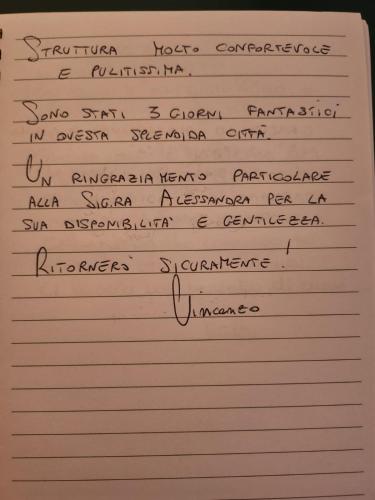 STRUTTURA MOLTO CONFORTEVOLE
E PULITISSIMA.
SONO STATI 3 GIORNI FANTASTICI
IN QUESTA SPLENDIDA CITTÀ.
UN RINGRAZIAMENTO PARTICOLARE
ALLA SIG.RA ALESSANDRA PER LA
SUA DISPONIBILITA' E GENTILEZZA.
RITORNERÒ SICURAMENTE!
Vincenzo